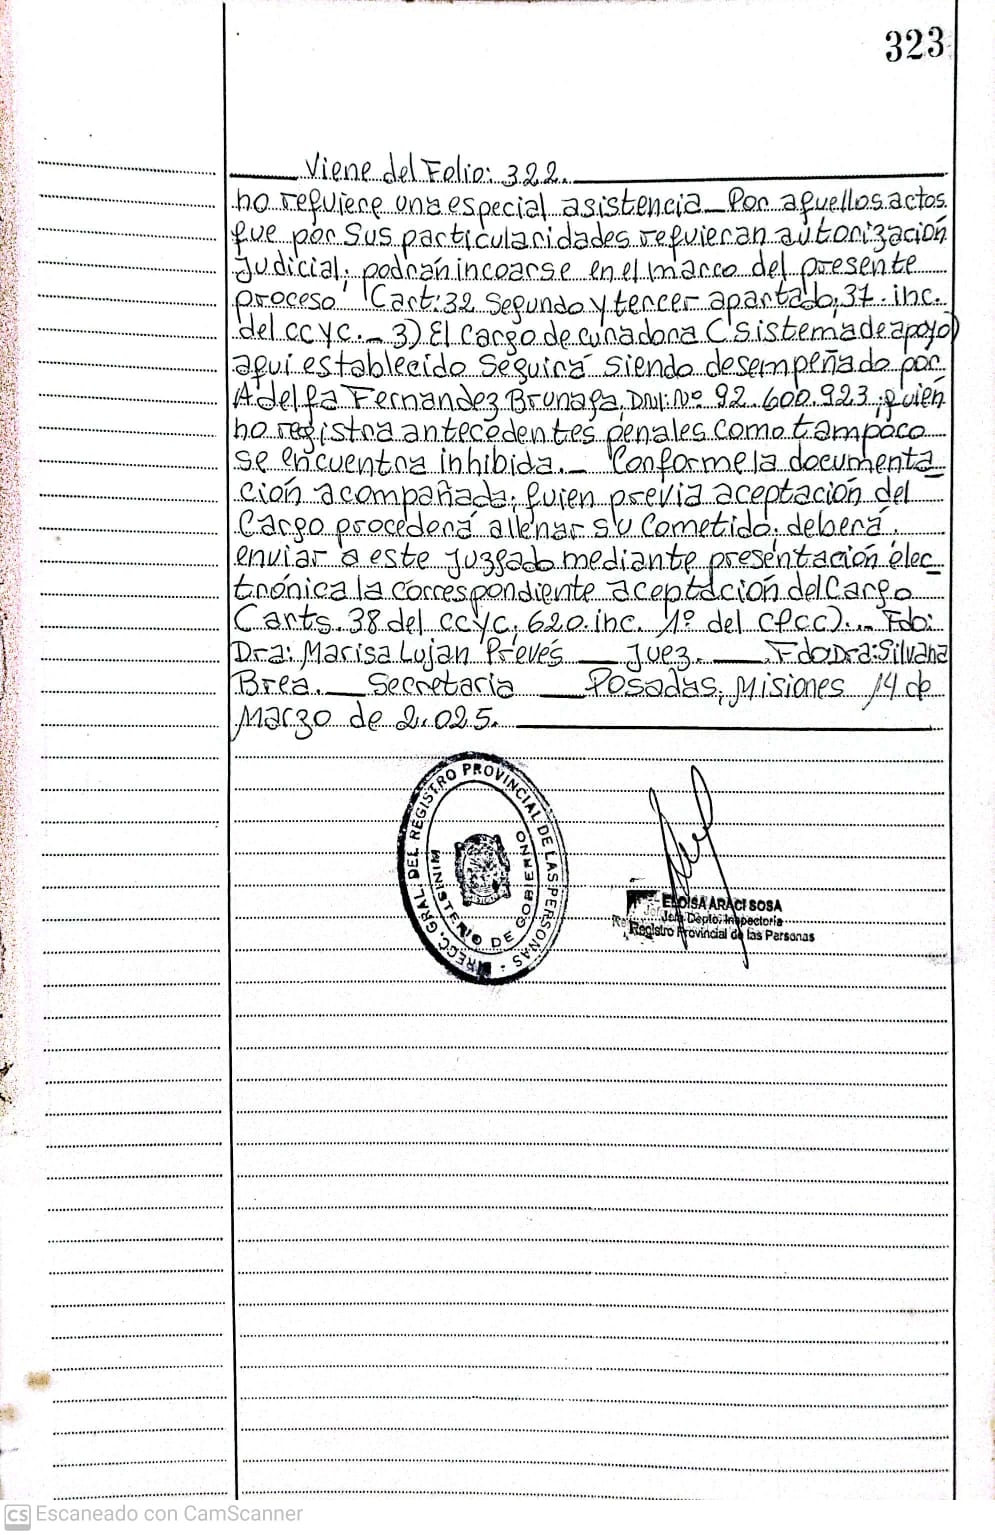 323
Viene del Folio: 322.
no requiere una especial asistencia _ Por aquellos actos
que por sus particularidades requieran autorización
judicial, podrán incoarse en el marco del presente
proceso (art: 32 segundo y tercer apartado, 31. inc.
del ccyc. _ 3) El Cargo de curadora (sistema de apoyo)
aquí establecido seguirá siendo desempeñado por
Adelfa Fernandez Brunaga, DNI: Nº 92.600.923, quién
no registra antecedentes penales como tampoco
se encuentra inhibida. _ Conforme la documenta
ción acompañada, quien previa aceptación del
Cargo procederá a llenar su cometido, deberá
enviar a este juzgado mediante presentación elec_
trónica la correspondiente aceptación del Cargo
(arts. 38 del ccyc, 620. inc. 1º del cpcc). _ Fdo:
Dra: Marisa Lujan Prevés _ Juez. _ Fdo Dra: Silvana
Brea. _ Secretaria _ Posadas, Misiones 14 de
Marzo de 2.025.
DIRECC. GRAL. DEL REGISTRO PROVINCIAL DE LAS PERSONAS
MINISTERIO DE GOBIERNO
ELOISA ARACI SOSA
Jefa Depto. Inspectoria
Registro Provincial de las Personas
CS Escaneado con CamScanner